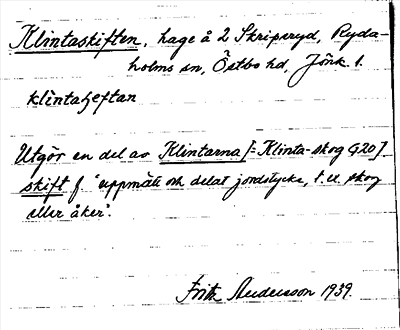 Klintaskiften, hage å 2 Skripsryd, Ryda-
holms sn, Östbo hd, Jönk. l.
klintaʃeftan
Utgör en del av Klintarna [= Klinta-skog G20]
skift f. "uppmätt och delat jordstycke, t. ex. skog
eller åker".
Fritz Andersson 1939.